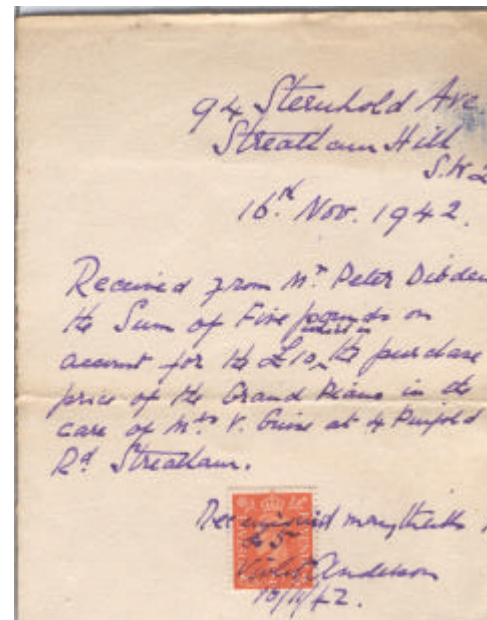 94 Sternhold Ave.
Streatham Hill
S.W.2
16th Nov. 1942.
Received from Mr Peter Dibden
the Sum of Five pounds on
which is
account for the £10, the purchase
price of the Grand Piano in the
care of Mrs V. Guise at 4 Pinfold
Rd Streatham.
Received many thanks
£5
Violet Anderson
16/11/42.